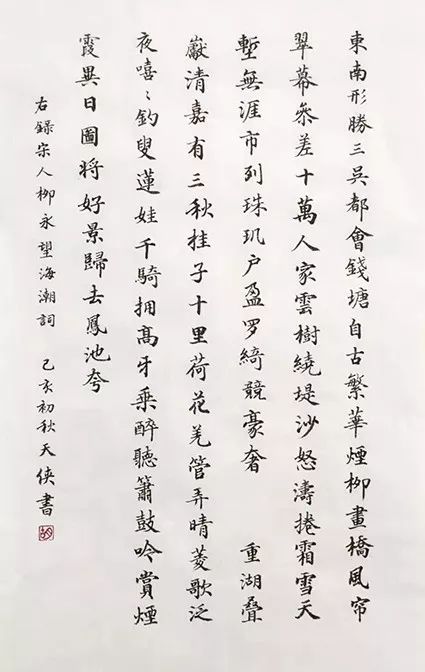 東南形勝三吳都會錢塘自古繁華煙柳畫橋風帘
翠幕叅差十萬人家雲樹繞堤沙怒濤捲霜雪天
塹無涯市列珠璣户盈罗綺競豪奢 重湖叠
巘清嘉有三秋桂子十里荷花羌管弄晴菱歌泛
夜嘻〻釣叟蓮娃千騎拥髙牙乘醉聽簫鼓吟賞煙
霞異日圖將好景歸去鳳池夸
右録宋人柳永望海潮詞 己亥初秋天侠書